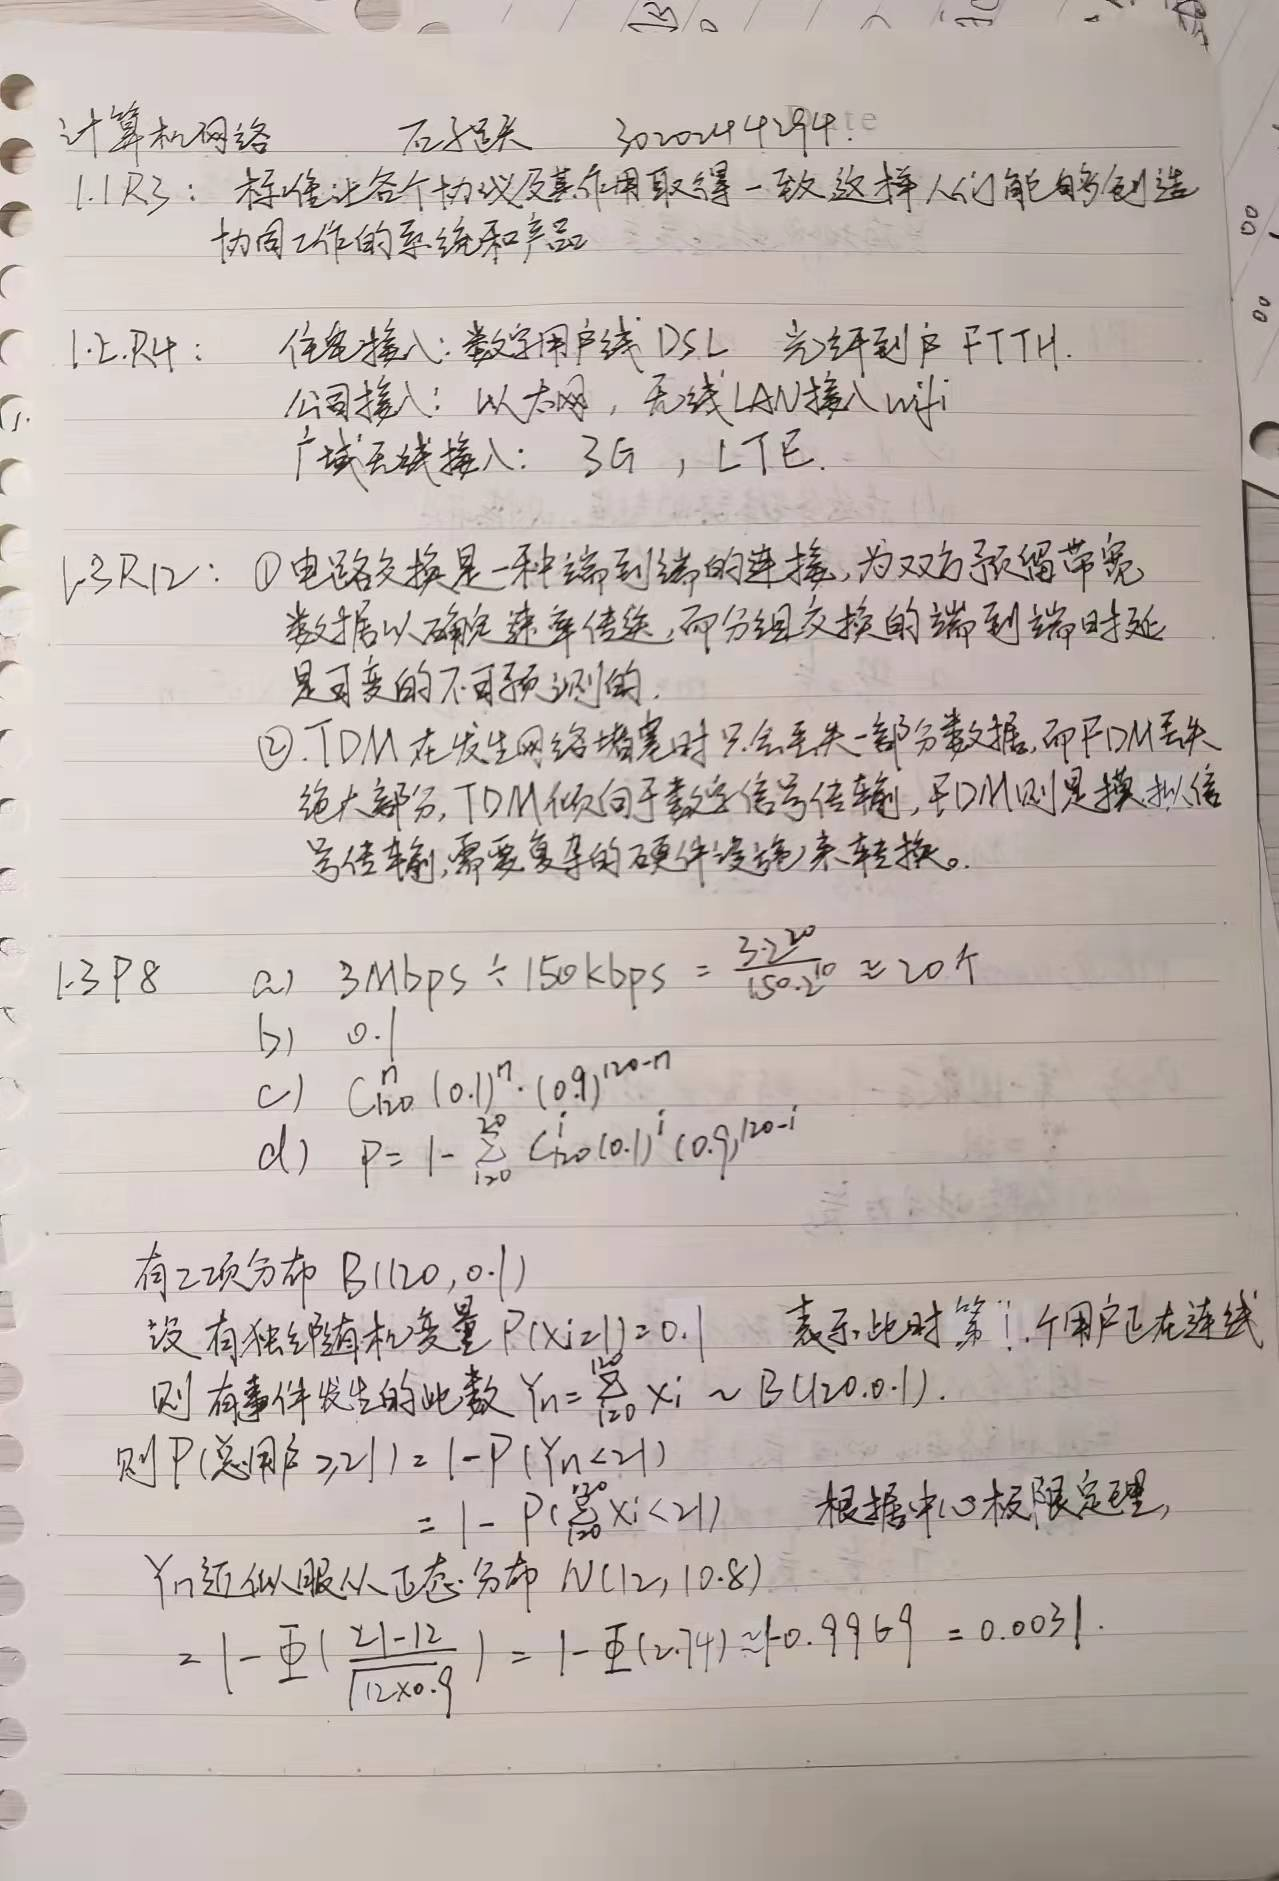 计算机网络 3020244294.
1.1R3: 标准让各个协议及其作用取得一致这样人们能够创造
协同工作的系统和产品
1.2.R4: 住宅接入: 数字用户线 DSL 光纤到户 FTTH.
公司接入: 以太网, 无线LAN接入 wifi
广域无线接入: 3G , LTE.
1.3R12: ①电路交换是一种端到端的连接, 为双方预留带宽
数据以确定速率传送, 而分组交换的端到端时延
是可变的不可预测的.
②.TDM在发生网络堵塞时只会丢失一部分数据, 而FDM丢失
绝大部分, TDM倾向于数字信号传输, FDM则是摸拟信
号传输, 需要复杂的硬件设施来转换。
1.3P8 a) 3Mbps ÷ 150kbps = 3·2^20 / 150·2^10 ≈ 20个
b) 0.1
c) C_120^n (0.1)^n · (0.9)^120-n
d) P= 1- ∑_{120}^{20} C_120^i (0.1)^i (0.9)^120-i
有二项分布 B(120,0.1)
设有独立随机变量 P(Xi=1)=0.1 表示此时第i个用户正在连线
则有事件发生的此数 Yn= ∑_{120}^{120} Xi ~ B(120.0.1).
则P(总用户≥21) = 1-P(Yn<21)
= 1- P(∑_{120}^{120} Xi<21) 根据中心极限定理,
Yn近似服从正态分布 N(12, 10.8)
= 1- Φ( (21-12) / √12×0.9 ) = 1- Φ(2.74) ≈1-0.9969 = 0.0031.